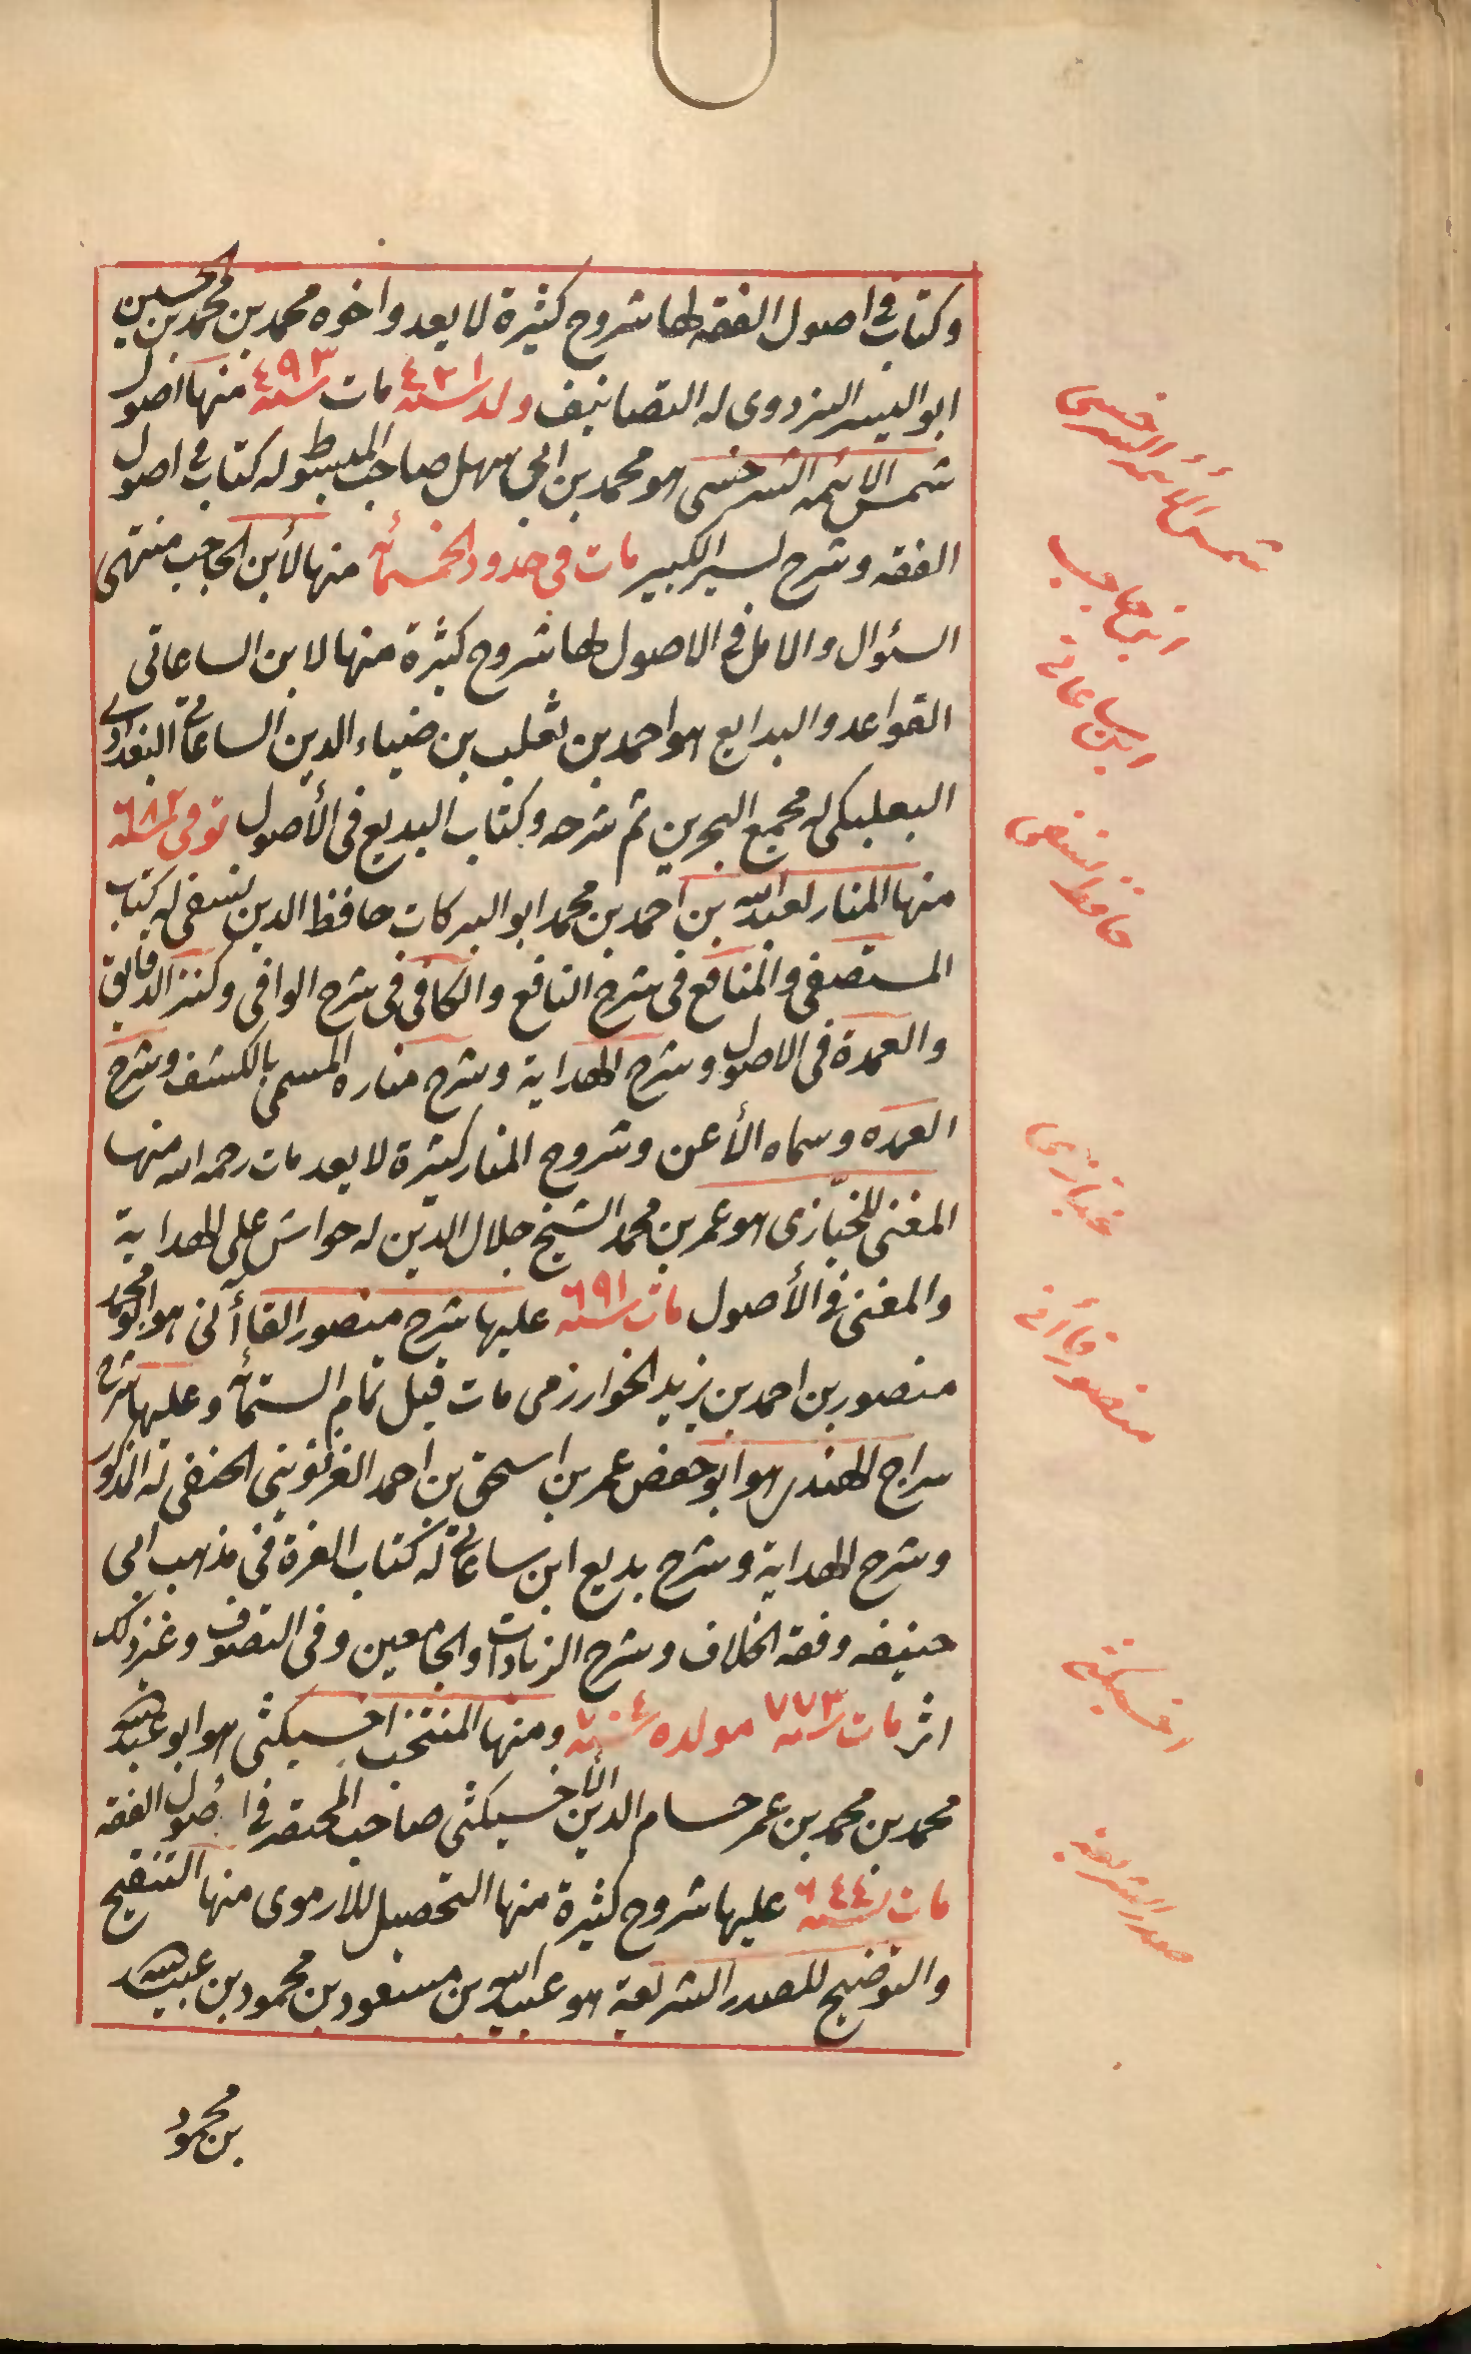 وكتاب في اصول الفقه لها شروح كثيرة لا يعد واخوه محمد بن محمد بن الحسين
ابو اليسر البزدوى له التصانيف ولد سنه ٤٢١ مات سنه ٤٩٣ منها اصول
شمس الائمه السرخسى هو محمد بن ابى سهل صاحب المبسوط وله كتاب في اصول
الفقه وشرح لسير الكبير مات في حدود الخمسمائه منها لأبن الحاجب منتهى
السئوال والامل في الاصول لها شروح كثيرة منها لابن الساعاتى
القواعد والبدايع هو احمد بن ثعلب بن ضياء الدين الساعاتي البغدادي
البعلبكى له مجمع البحرين ثم شرحه وكتاب البديع فى الأصول توفى سنه ٦٨٢
منها المنار لعبد الله بن احمد بن محمد ابو البركات حافظ الدين نسفى له كتاب
المستصفى والمنافع فى شرح النافع والكافى فى شرح الوافى وكنز الدقايق
والعمدة فى الاصول وشرح الهداية وشرح مناره المسمى بالكشف وشرح
العمده وسماه الأعن وشروح المنار كثيرة لا يعد مات رحمه الله منها
المغنى للخبّازى هو عمر بن محمد الشيخ جلال الدين له حواش على الهداية
والمغنى في الأصول مات سنه ٦٩١ عليها شرح منصور القاأنى هو ابو محمد
منصور بن احمد بن يزيد الخوارزمى مات قبل تمام الستمأة وعليها شرح
سراج الهندى هو ابو حفص عمر بن اسحق بن احمد الغزنوينى الحنفى له المذكور
وشرح الهداية وشرح بديع ابن ساعاتي له كتاب الغرة فى مذهب ابى
حنيفه وفقه الخلاف وشرح الزيادات والجامعين وفى التصوف وغير ذلك
اثر مات سنه ٧٧٣ مولده سنه ٧٠٤ ومنها المنتخب اخسيكثى هو ابو عبد الله
محمد بن محمد بن عمر حسام الدين الأخسيكثى صاحب المختصر في اصول الفقه
مات سنه ٦٤٤ عليها شروح كثيرة منها التحصيل للارموى منها التنقيح
والتوضيح للصدر الشريعة هو عبيد الله بن مسعود بن محمود بن عبيد الله
بن محمود
شمس الأئمه السرخسى
ابن حاجب
ابن ساعاتي
حافظ نسفى
خبازى
منصور قاأنى
اخسيكثى
صدر الشريعه